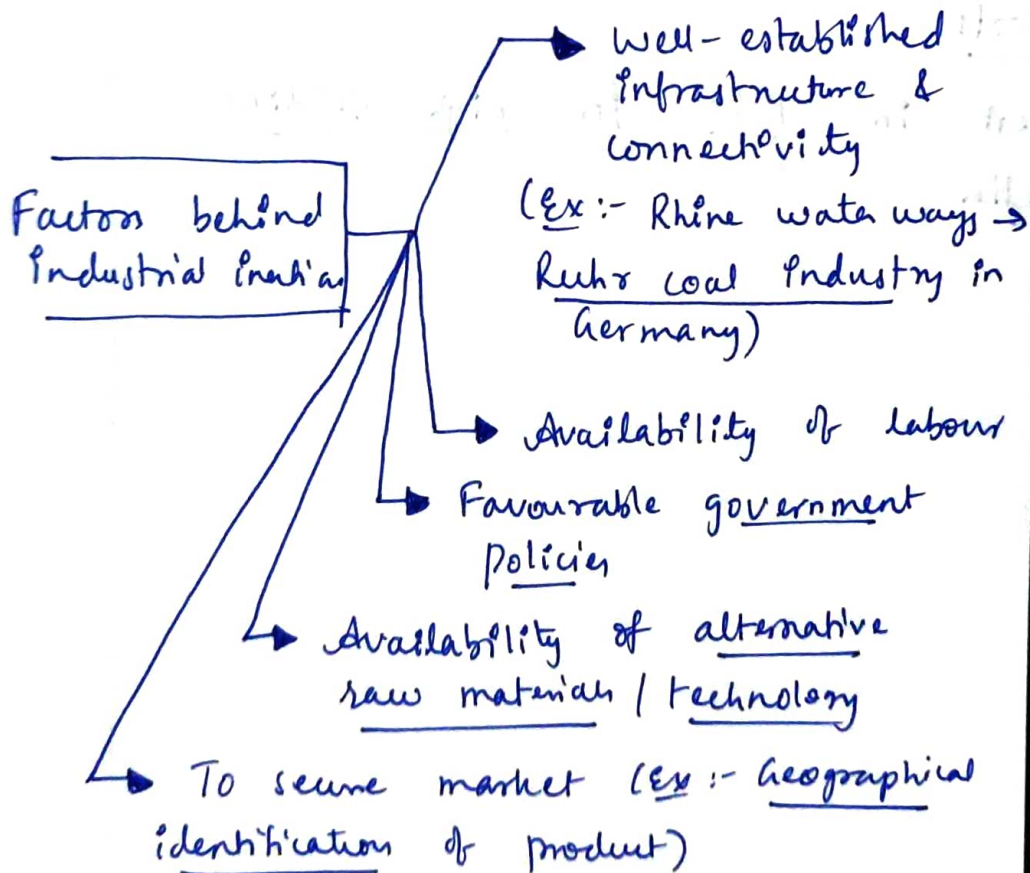 Factors behind
industrial inertia
Well-established
infrastructure &
connectivity
(Ex:- Rhine water ways →
Ruhr coal industry in
Germany)
Availability of labour
Favourable government
policies
Availability of alternative
raw materials / technology
To secure market (Ex:- Geographical
identification of product)